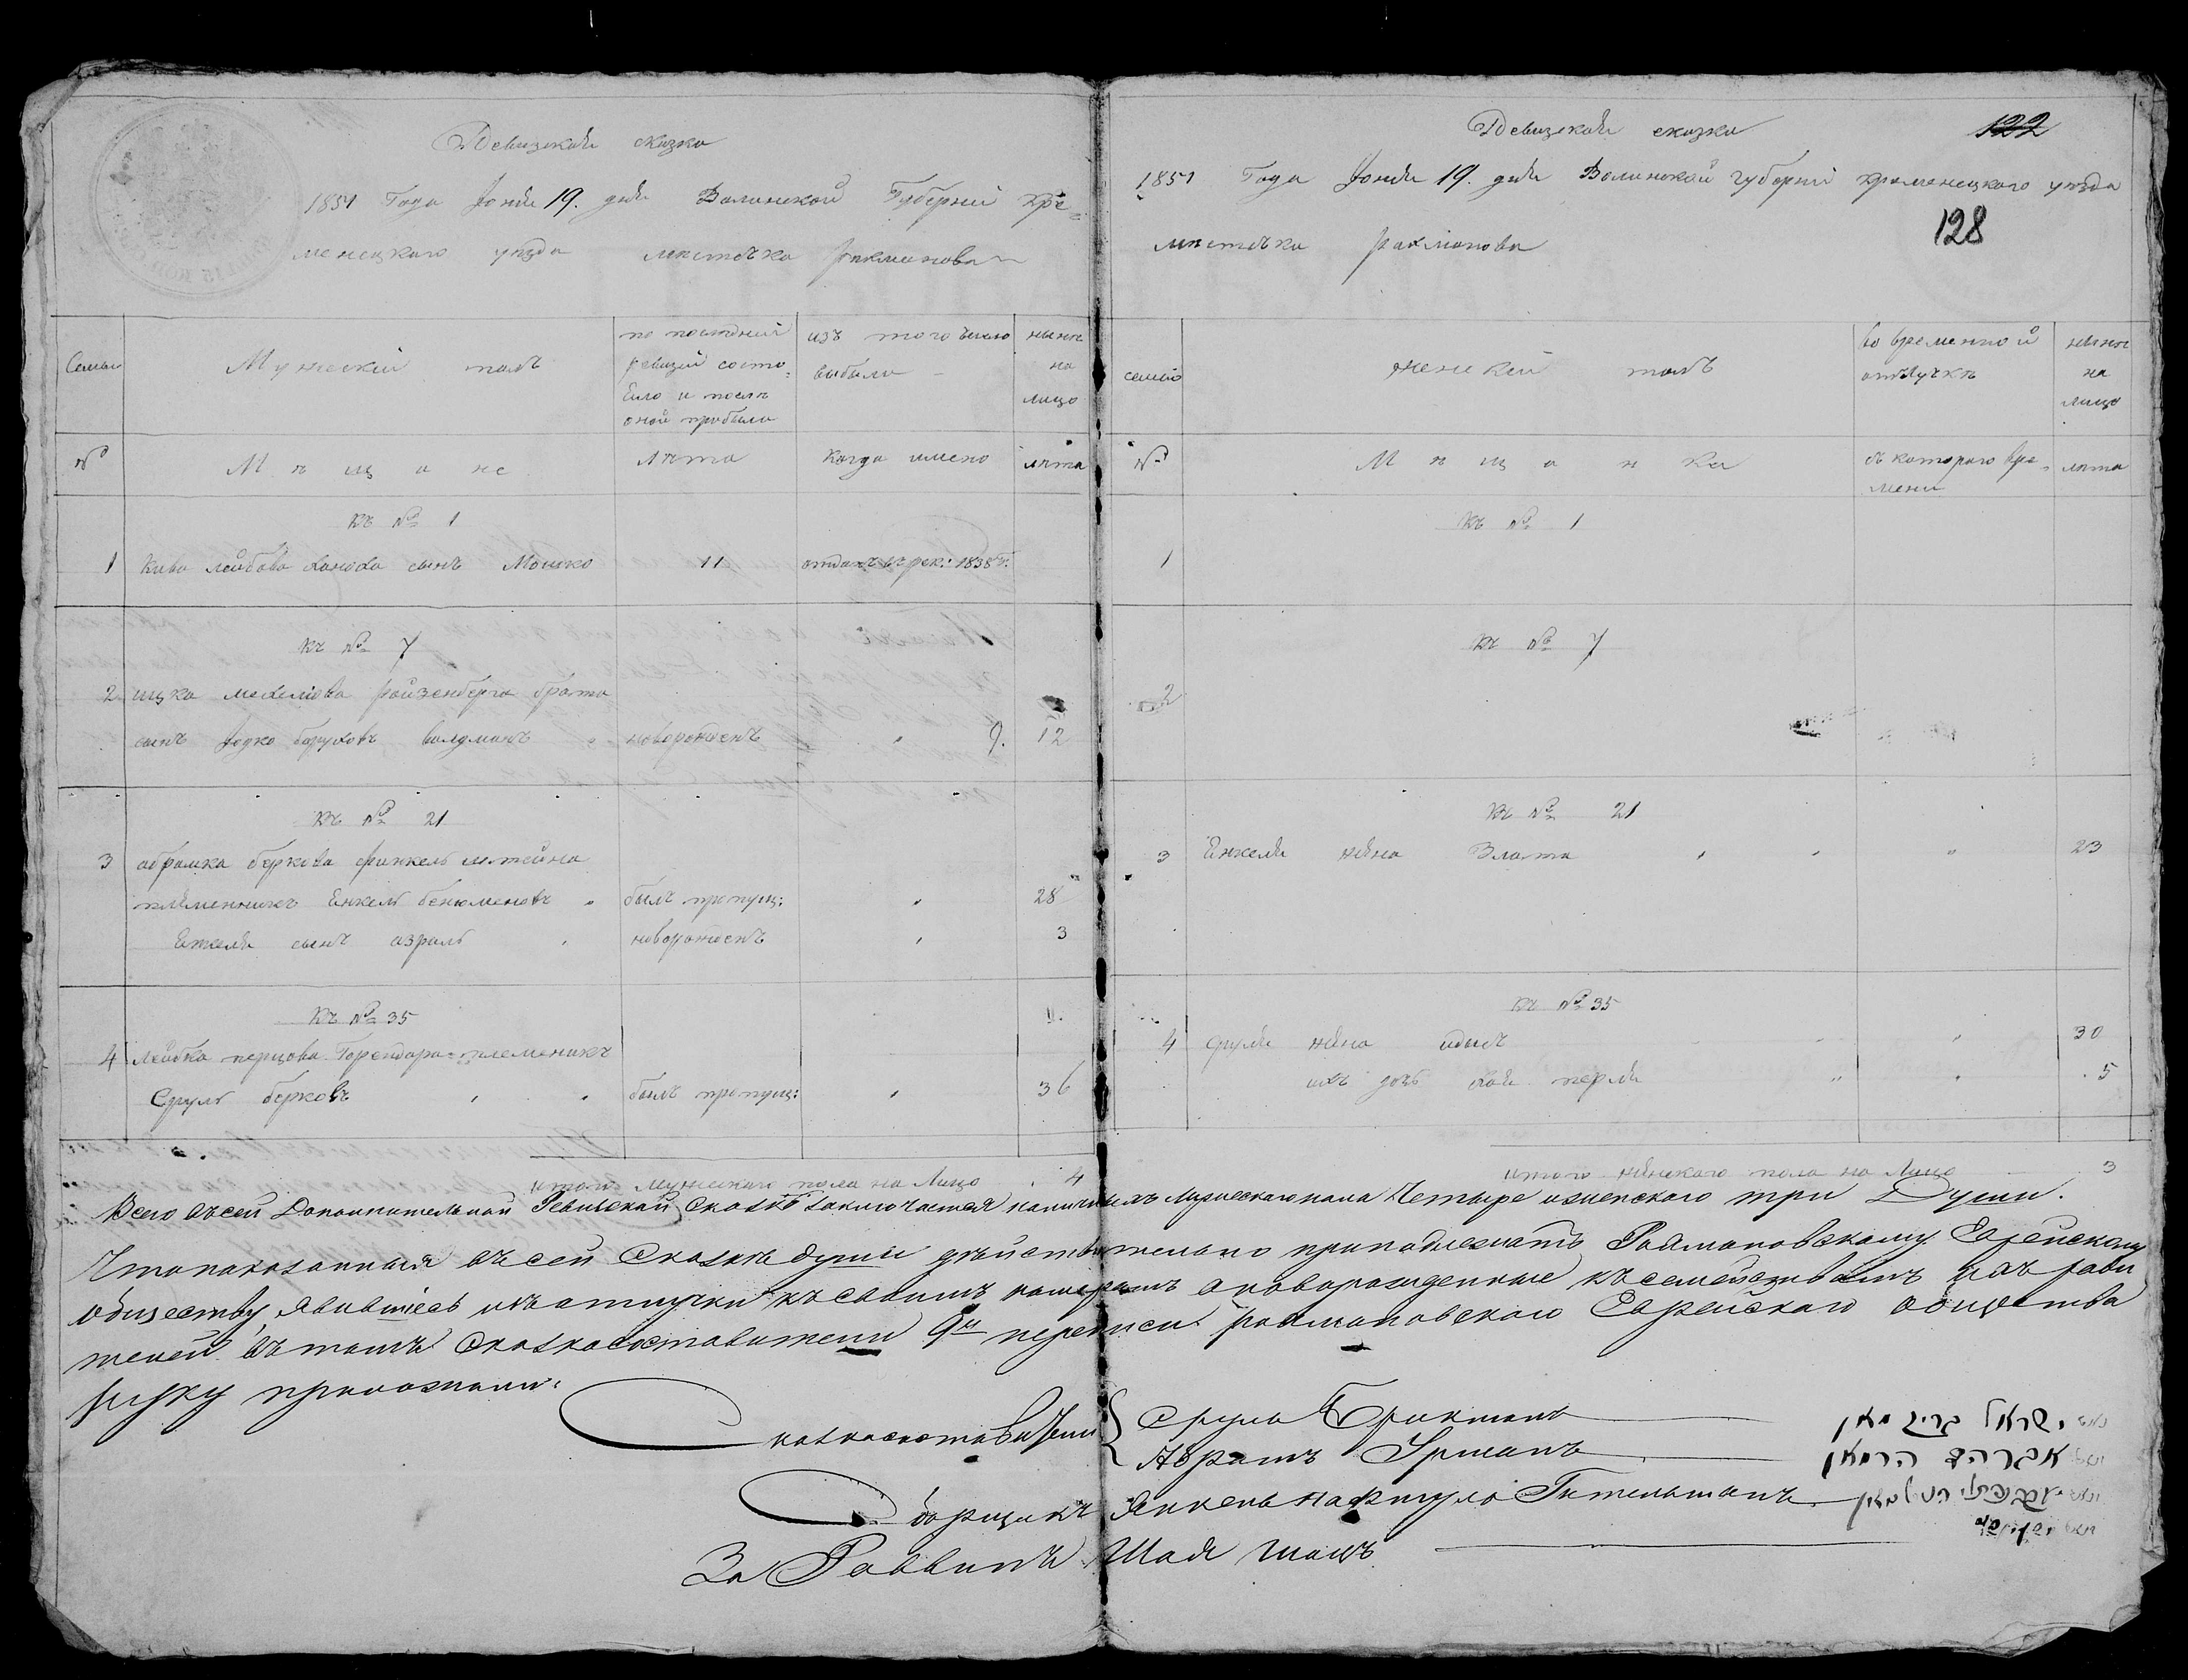 Ревизская сказка
1851 Года Іюня 19. дня Волинской Губерніи Кре=
менецкого уезда местечка Рахманова
Семьи
Мужескій полъ
по последней ревизіи состо=
яло и после
оной прибыло
изъ того число
выбыло
ныне
на
лицо
№
Мещане
лета
Когда имено
лета
Къ № 1
1 Кива лейбова ханоха сынъ Мошко 11 отданъ въ рек: 1838 г.
Къ № 7
2 ицка мехелiова Ройзенберга брата
сынъ Іодко боруховъ валдманъ новорожденъ 9. 12
Къ № 21
3 абрамка беркова финкельштейна
племенникъ Енкель бенюменовъ былъ пропущ: 28
Енкеля сынъ азраль новорожденъ 3
Къ № 35
4 лейбка перцова Горендара племеникъ
Сруль берковъ былъ пропущ: 36
итого мужескаго пола на Лицо 4
Ревизская сказка
122
1851 Года Іюня 19. дня Волинской губерніи кременецкого уезда
128
местечка Рахманова
семьи
женскій полъ
во временной
отлучке
ныне
на
лицо
№
Мещанка
съ которого вре=
мени
лета
Къ № 1
1
Къ № 7
2
Къ № 21
3 Енкеля жена Злата 23
Къ № 35
4 Сруля жена 30
ихъ дочь хая перля 5
итого женского пола на Лицо 3
Всего въ сей Дополнительной Ревизской Сказке заключается наличныхъ Мужескаго пола Четыре и женского три Души.
Что показанныя въ сей Сказке души действительно принадлежатъ Рахмановскому Еврейскому
обществу, явившіесь изъ отлучки къ своимъ номерамъ а новорожденные къ семействамъ ихъ роди
телей. въ томъ Сказкосоставители 9й переписи Рахмановского Еврейского общества
руку приложили:
Сказкосоставители { Сруль Брикманъ ישראל בריק מאן
Абрамъ Урманъ אברהם הרמאן
Сборщикъ Янкель Нафтула Гительманъ
За Раввинъ Шая